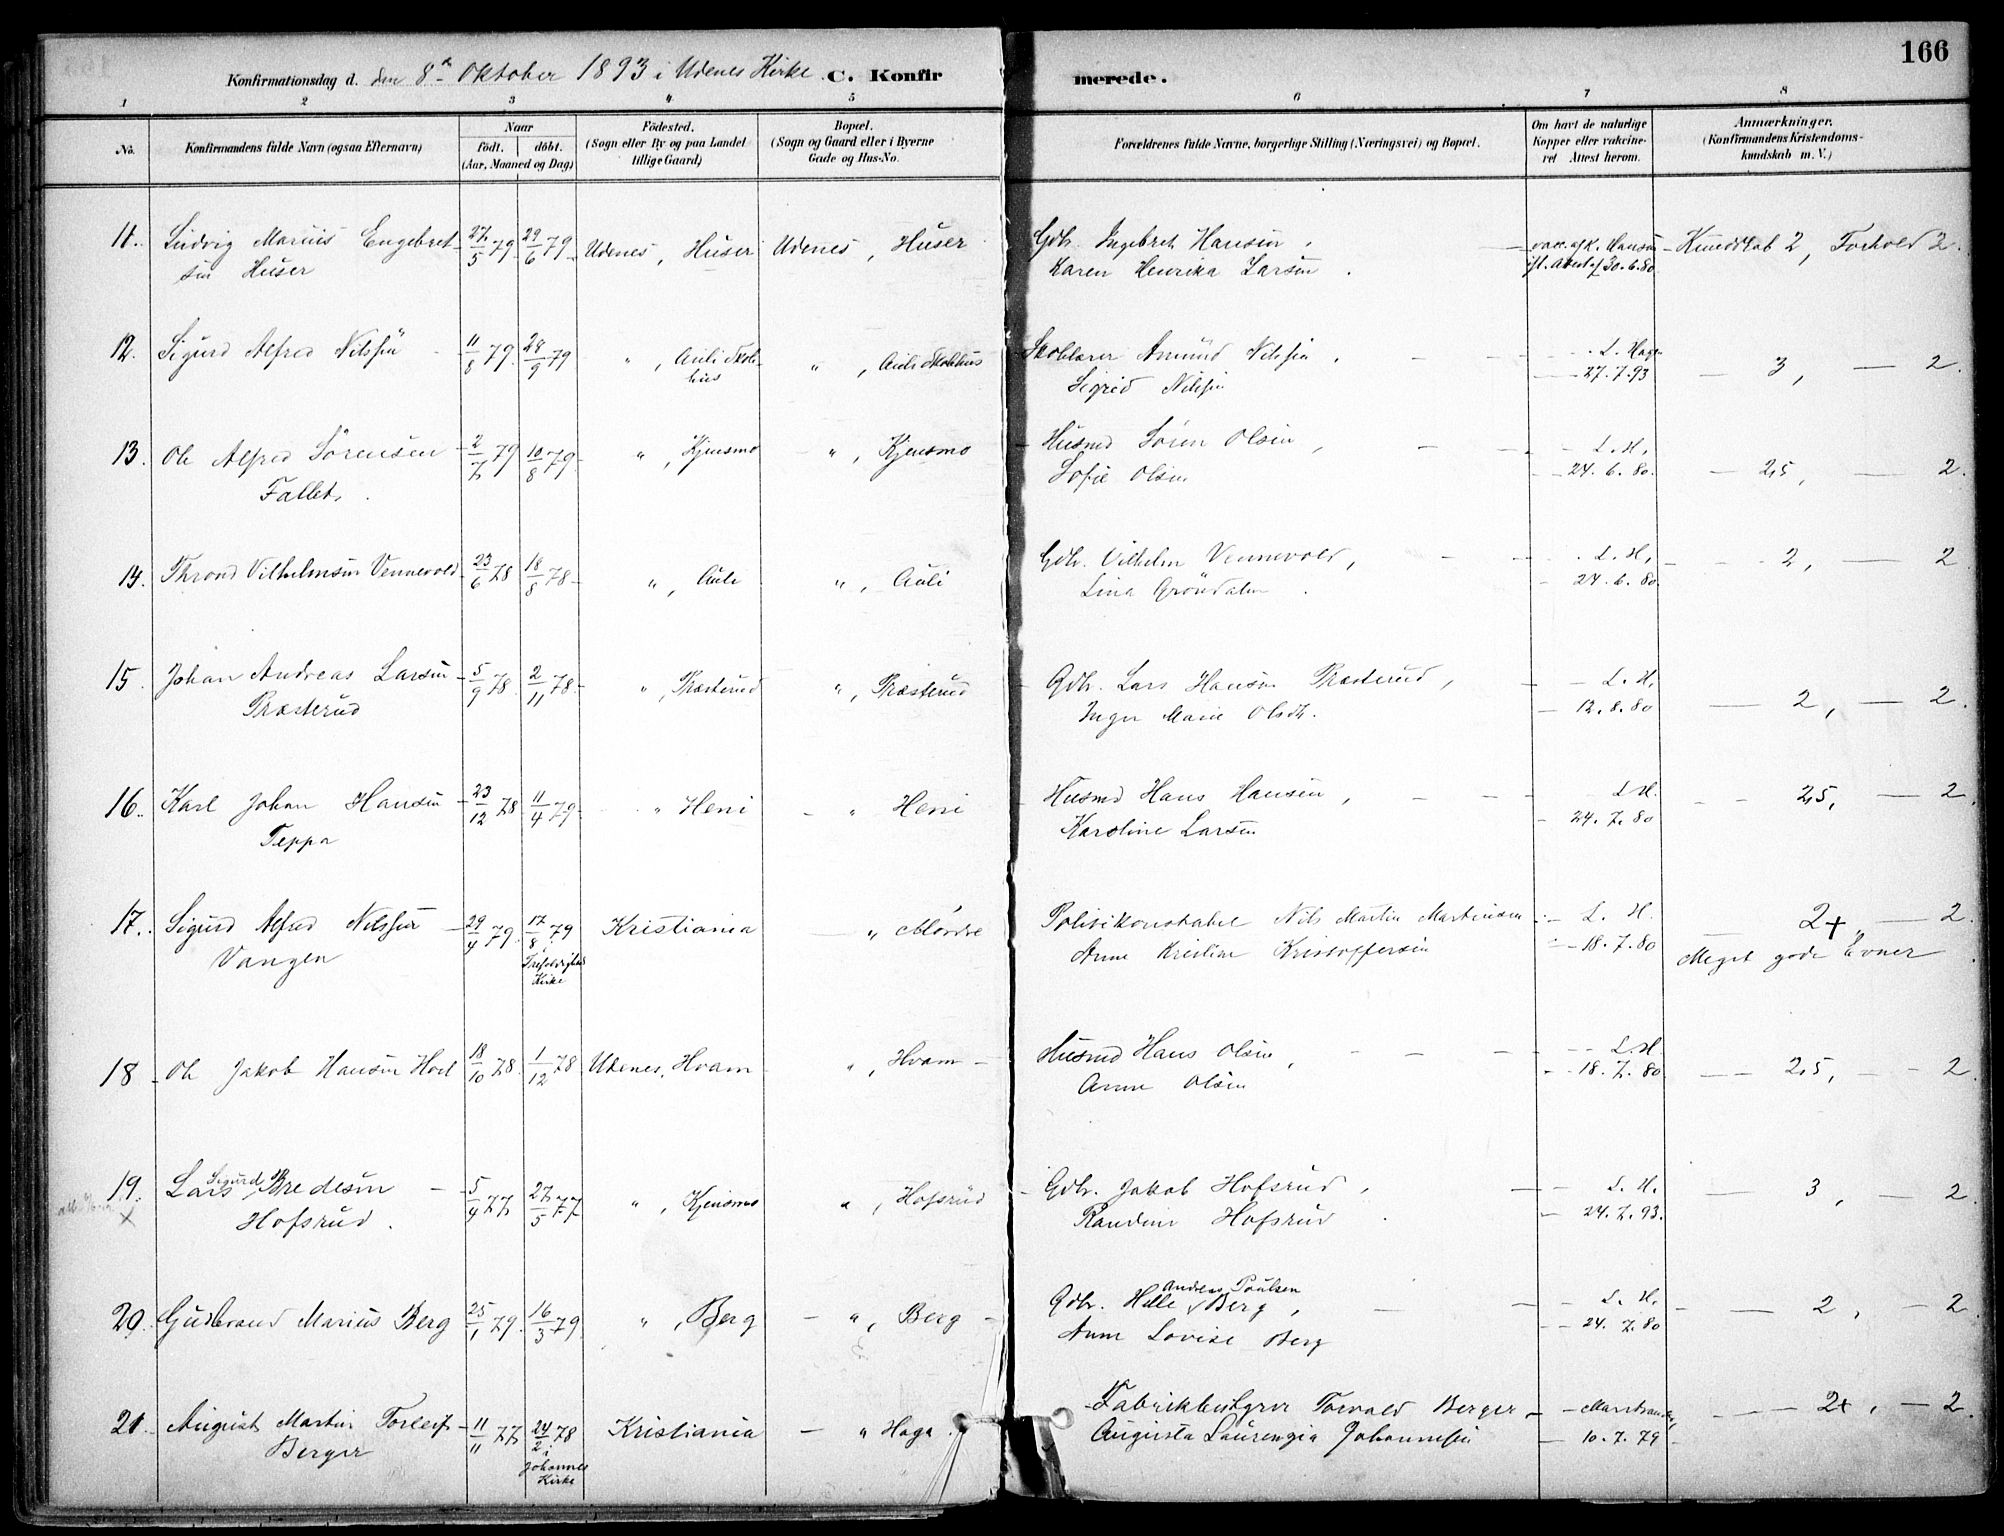 166
Konfirmationsdag d. den 8de Oktober 1893 i Udenes Kirke. C. Konfirmerede.
1 2 3 4 5 6 7 8
No.
Konfirmandens fulde Navn (ogsaa Efternavn)
Naar
födt. döbt.
(Aar, Maaned og Dag)
Födested.
(Sogn eller By og paa Landet
tillige Gaard)
Bopæl.
(Sogn og Gaard eller i Byerne
Gade og Hus-No.
Forældrenes fulde Navne, borgerlige Stilling (Næringsvei) og Bopæl.
Om havt de naturlige
Kopper eller vakcine-
ret Attest herom.
Anmærkninger.
(Konfirmandens Kristendoms-
kundskab m. V.)
11. Ludvig Marius Engebret- 27/5 79 29/6 79 Udenes, Huser Udenes, Huser Gdbr. Ingebret Hansen, vacc. afk. Hansen Kundskab 2, Forhold 2.
sen Huser Karen Henrika Larsen. ifl. Attest af 30.6.80
12. Sigurd Alfred Nilssen 11/8 79. 28/9 79 ", Auli Skole- ", Auli Skolehus Skolelærer Amund Nilssen, L. Hagen 3, 2.
hus Sigrid Nilssen 27.7.93
13. Ole Alfred Sörensen 2/7 79 10/8 79 ", Kjensmo ", Kjensmo Husmd Sören Olsen, L. H. 2,5, 2.
Fallet. Sofie Olsen 24.6.80.
14. Thrond Vilhelmsen Vennevold 23/6 78 18/8 78 ", Auli ", Auli Gdbr. Vilhelm Vennevold, L. H. 2, 2
Lina Gröndalen. 24.6.80.
15. Johan Andreas Larsen 5/9 78. 2/11 78 ", Præsterud ", Præsterud Gdbr. Lars Hansen Præsterud, L. H. 2, 2.
Præsterud Inger Marie Olsdt. 12.8.80
16. Karl Johan Hansen 23/12 78 11/4 79 " Heni " Heni Husmd Hans Hansen, L. H. 2,5, 2.
Teppa Karoline Larsen 24.7.80
17. Sigurd Alfred Nilssen 29/4 79. 17/8 79 Kristiania " Mördre Politikonstabel Nils Martin Martinsen L. H. 2+ 2.
Vangen i Trefoldigheds Kirke Anne Kristine Kristoffersen 18.7.80 Meget gode Evner.
18 Ole Jakob Hansen Hvel 18/10 78. 1/12 78 Udenes, Hvam ", Hvam Husmd Hans Olsen, L. H. 2,5, 2.
Anne Olsen 18.7.80
19. Lars Sigurd Bredesen 5/4 77 27/5 77 ", Kjensmo ", Hofsrud Gdbr. Jakob Hofsrud, L. H. 3, 2.
Hofsrud. Randine Hofsrud. 24.7.93.
20. Gudbrand Marius Berg 25/1 79. 16/3 79 ", Berg ", Berg Gdbr. Helle Andreas Poulsen Berg, L. H. 2, 2.
Anne Lovise Berg 24.7.80
21. August Martin Torleif 11/11 77 24/2 78 Kristiania " Haga. Fabrikbestyrer Torvald Berger, Marstrander, 2+, 2.
Berger i Johannes Kirke Augusta Laurengia Johannesen 10.7.79